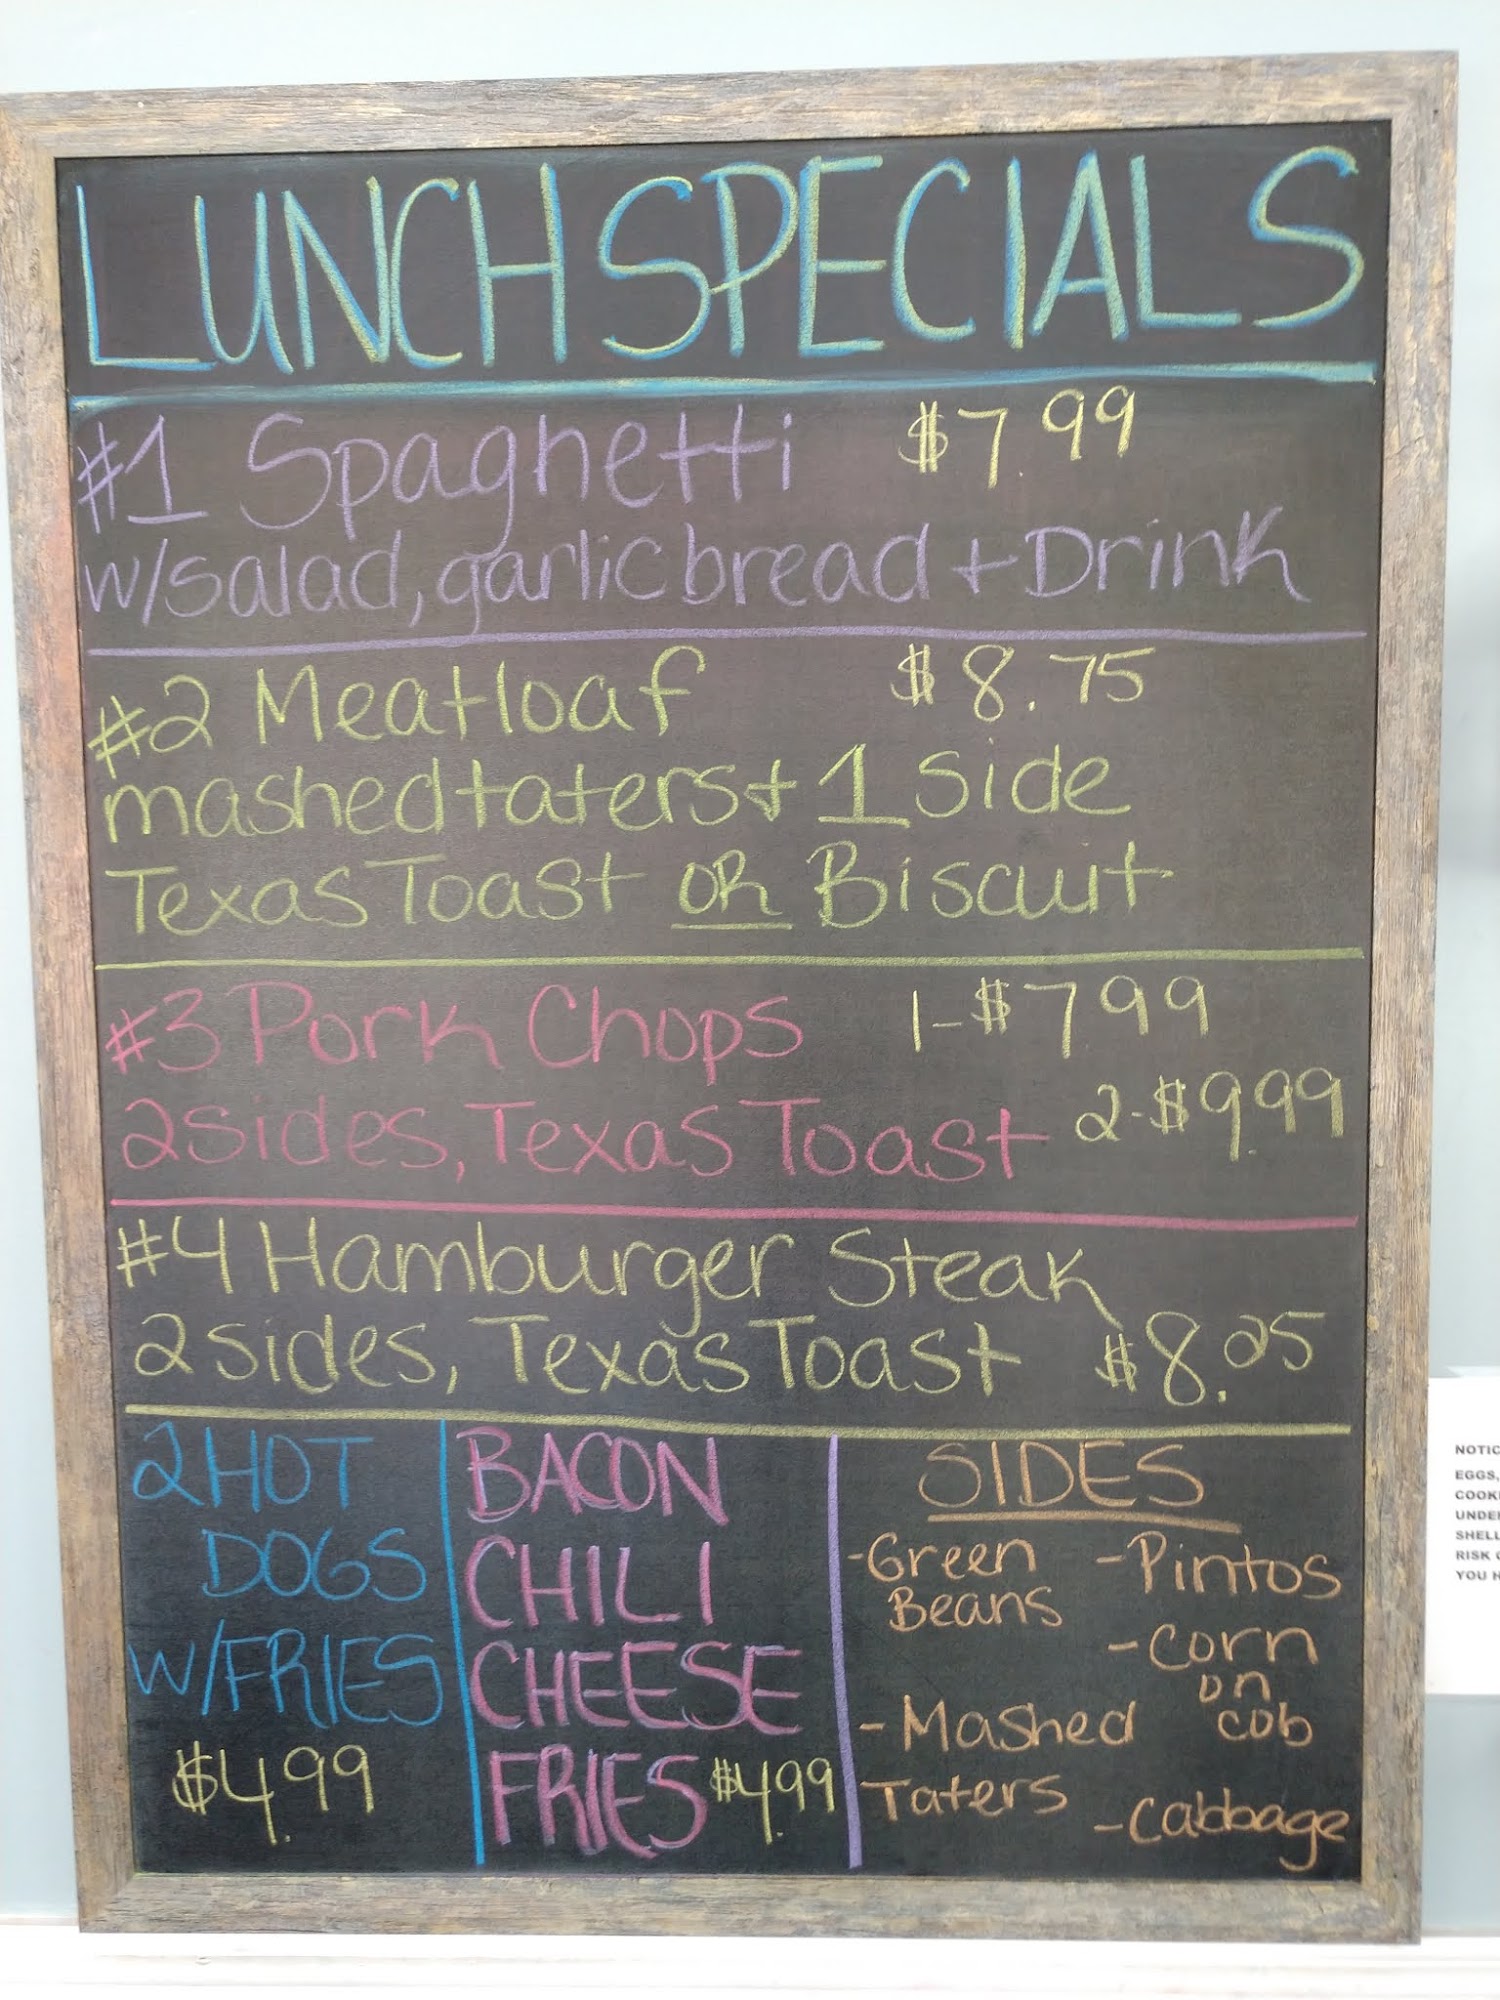 LUNCH SPECIALS
#1 Spaghetti $7.99
w/salad, garlic bread + Drink
#2 Meatloaf $8.75
mashed taters + 1 side
Texas Toast OR Biscuit
#3 Pork Chops 1-$7.99
2 sides, Texas Toast 2-$9.99
#4 Hamburger Steak
2 sides, Texas Toast $8.25
2 HOT
DOGS
W/FRIES
$4.99
BACON
CHILI
CHEESE
FRIES $4.99
SIDES
-Green
Beans
-Mashed
Taters
-Pintos
-Corn
on
cob
-Cabbage
EGGS,
RISK